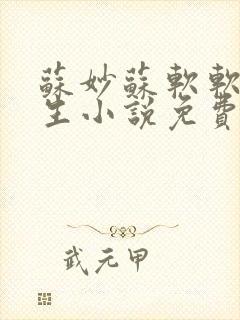 蘇妙蘇軟軟
生小說免費
武元甲